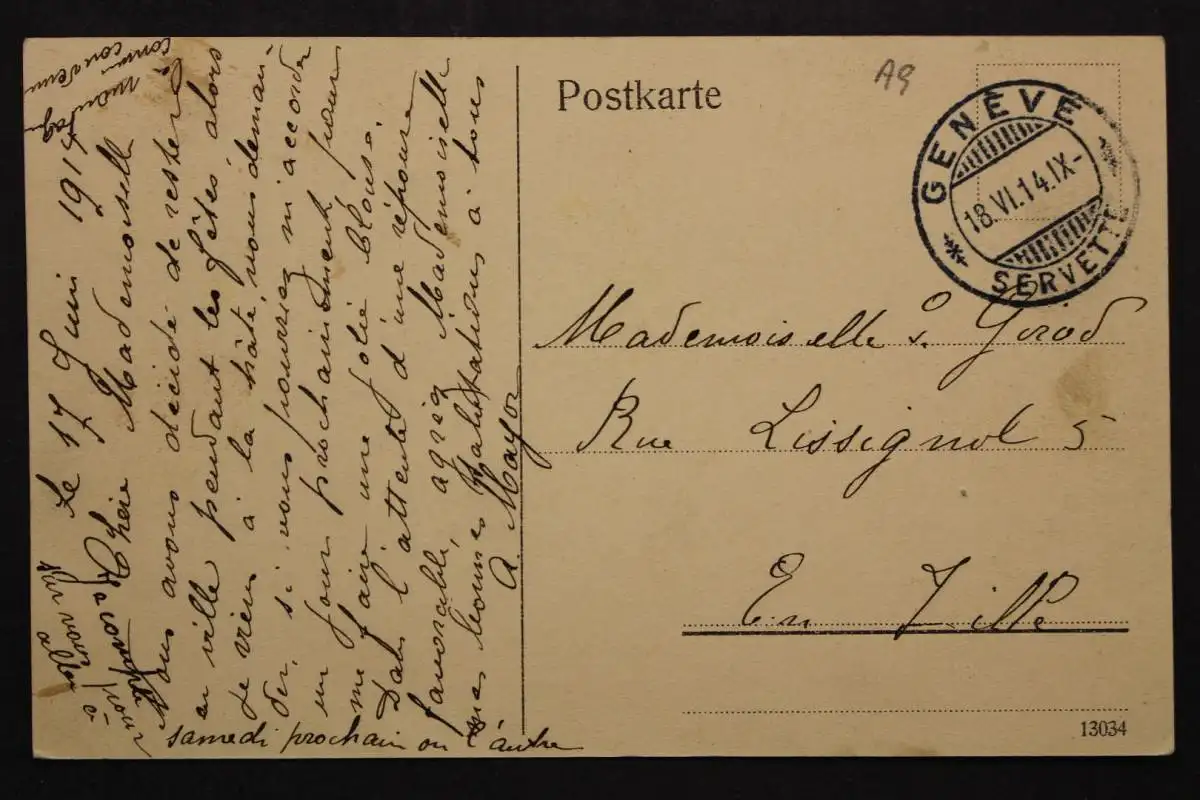 Le 17 Juin 1914
Chère Mademoiselle
Nous avons décidé de rester
en ville pendant les fêtes alors
Je viens à la hâte vous deman-
der si vous pourriez m'accorder
un jour prochainement pour
me faire une jolie blouse.
Dans l'attente d'une réponse
favorable, agréez Mademoiselle
mes bonnes salutations à tous
A. Mayor
samedi prochain ou l'autre
Postkarte
A9
GENÈVE
18.VI.14.IX-
SERVETTE
Mademoiselle S. Girod
Rue Lissignol 5
En Ville
13034